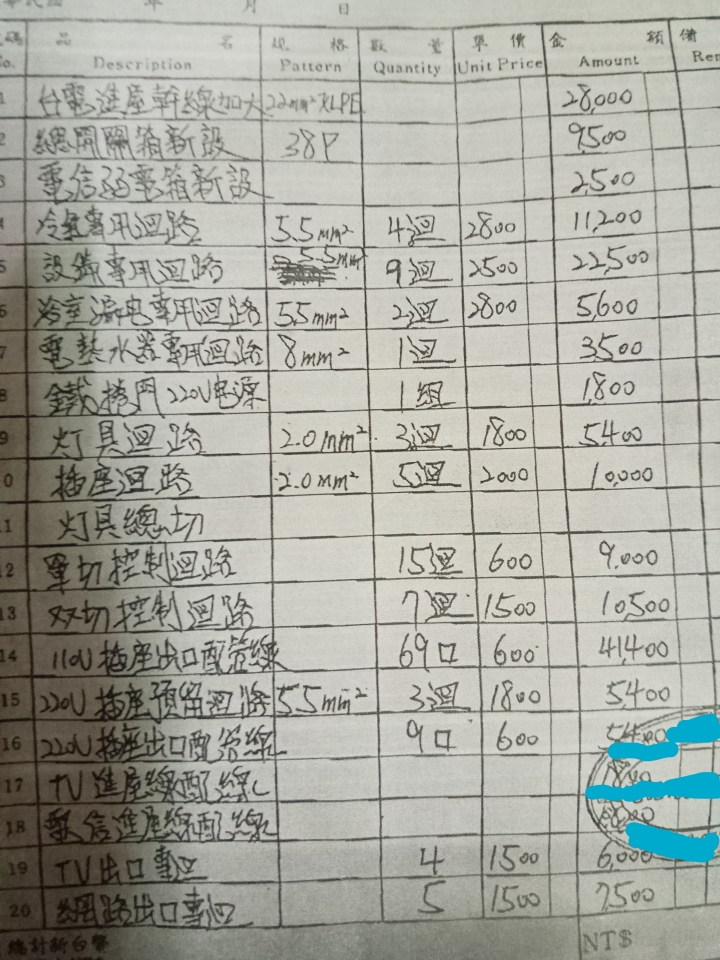 年 月 日
品 名 規 格 數 量 單 價 金 額 備
No. Description Pattern Quantity Unit Price Amount
1 台電進屋幹線加大 22mm² XLPE 28,000
2 總開關箱新設 38P 9,500
3 電信弱電箱新設 2,500
4 冷氣專用迴路 5.5mm² 4迴 2800 11,200
5 設備專用迴路 5.5mm² 9迴 2500 22,500
6 浴室漏电專用迴路 5.5mm² 2迴 2800 5,600
7 電熱水器專用迴路 8mm² 1迴 3,500
8 鐵捲門220V电源 1組 1,800
9 灯具迴路 2.0mm² 3迴 1800 5,400
10 插座迴路 2.0mm² 5迴 2000 10,000
11 灯具總切
12 單切控制迴路 15迴 600 9,000
13 双切控制迴路 7迴 1500 10,500
14 110V插座出口配管線 69口 600 41,400
15 220V插座預留迴路 5.5mm² 3迴 1800 5,400
16 220V插座出口配管線 9口 600 5,400
17 TV進屋線配線
18 電信進屋線配線
19 TV出口專迴 4 1500 6,000
20 網路出口專迴 5 1500 7,500
總計新台幣 NT$